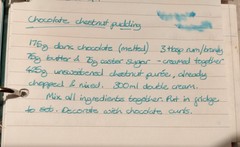 Chocolate chestnut pudding
175g dark chocolate (melted) 3 tbsp rum/brandy
75g butter & 75g caster sugar - creamed together
425g unsweetened chestnut purée, already
chopped & mixed. 300ml double cream.
Mix all ingredients together. Put in fridge
to set. Decorate with chocolate curls.